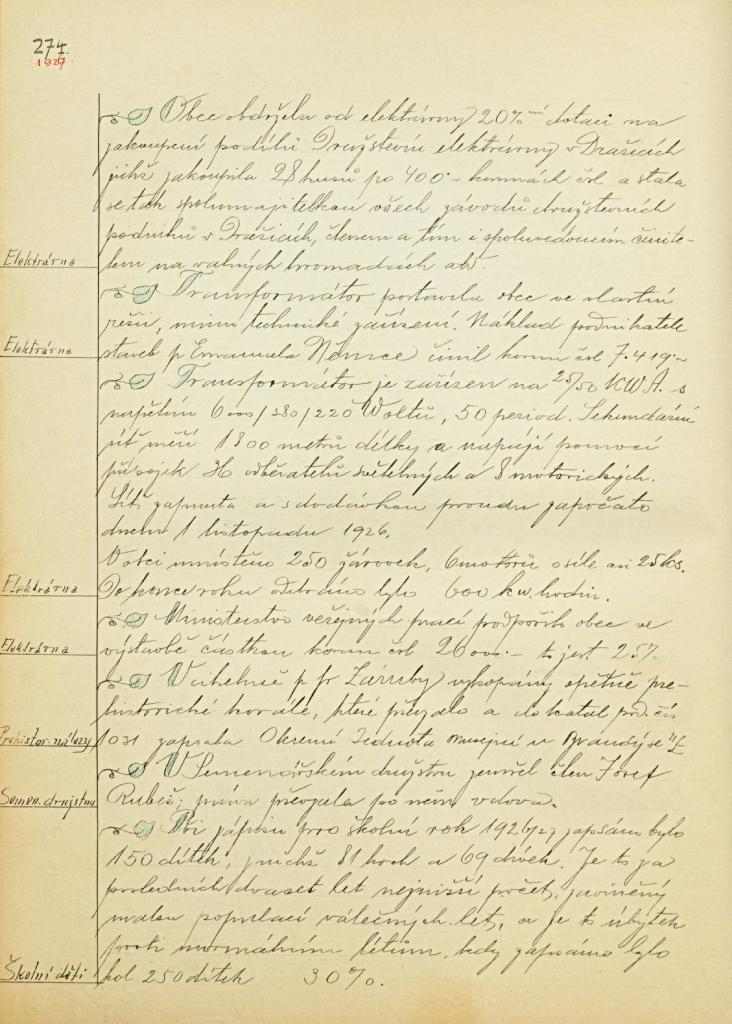 274.
1927
Obec obdržela od elektrárny 20%ní dotaci na
zakoupení podílů Družstevní elektrárny v Dražicích
jichž zakoupila 28 kusů po 400·- korunách čsl. a stala
se tak spolumajitelkou všech závodů družstevních
podniků v Dražicích, členem a tím i spoluvedoucím činite-
Elektrárna lem na valných hromadách atd.
Transformátor postavila obec ve vlastní
režii, mimo technické zařízení. Náklad podnikatele
Elektrárna staveb p. Emanuela Němce činil korun čsl 7.419·-
Transformátor je zařízen na 25/50 KWA. s
napětím 6000/380/220 Woltů, 50 period. Sekundární
síť měří 1800 metrů délky a napájí pomocí
přívojek 36 odběratelů světelných a 8 motorických.
Síť zapnuta a s dodávkou proudu započato
dnem 1 listopadu 1926.
V obci umístěno 250 žárovek, 6 motorů o síle asi 25 ks.
Elektrárna Do konce roku odebráno bylo 600 kw. hodin.
Ministerstvo veřejných prací podpořilo obec ve
Elektrárna výstavbě částkou korun čsl 26000·- to jest 25%.
V cihelně p. fr. Záruby vykopány opětně pre-
historické korále, které převzala a do katal. pod. čís
Prehistor. nálezy 1031 zapsala Okresní Jednota musejní v Brandýse n/L
V Semenářském družstvu zemřel člen Josef
Semen. družstvo Rubeš; práva převzala po něm vdova.
Při zápisu pro školní rok 1926/27 zapsáno bylo
150 dítek, z nichž 81 hoch a 69 dívek. Je to za
posledních dvacet let nejnižší počet, zaviněný
malou populací válečných let, a je to úbytek
proti normálním létům, kdy zapsáno bylo
Školní děti kol 250 dítek 30%.